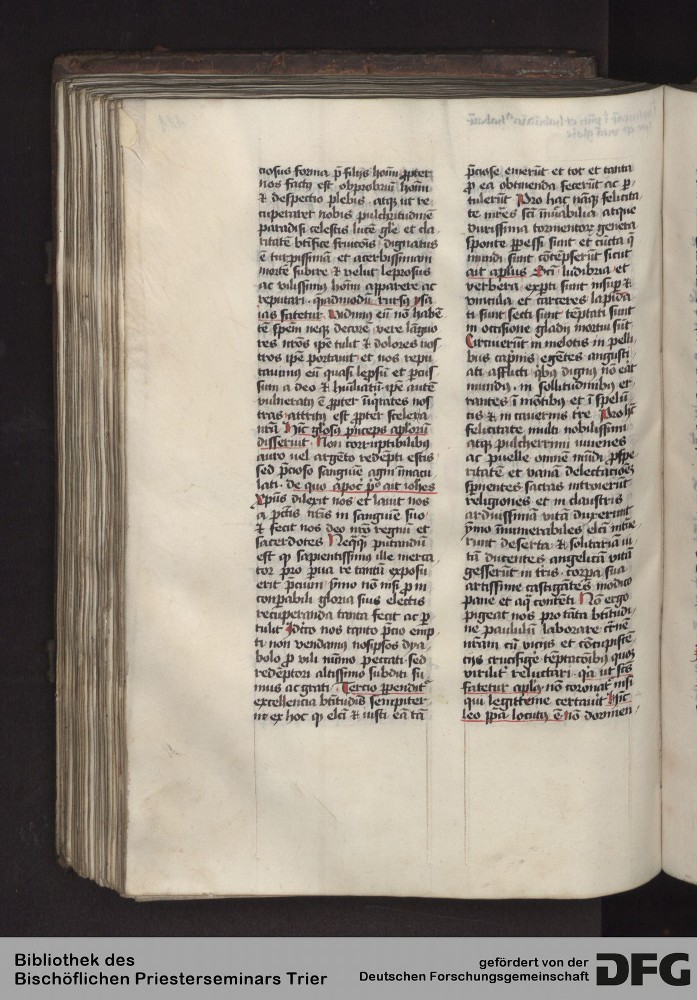 ciosus forma p̄ filijs hoīm ꝓpter
nos factꝰ est obprobriū hoīm
⁊ despectio plebis . atqꝫ ut re
cuperaret nobis pulchritudinē
paradisi celestis lucē glē et cla
ritatē btīfice fruicōis dignatus
ē turpissimā et acerbissimam
mortē subire ⁊ velut leprosus
ac vilissimꝰ hoīm apparere ac
reputari . quēadmodū rursꝰ ysa
ias fatetur . Vidimꝰ eū nō habē
tē spēm neqꝫ decorē . vere lāguo
res nr̄os ip̄e tulit ⁊ dolores nos
tros ip̄e portauit et nos repu
tauimꝰ eū quasi lep̄sū et ꝑcus
sum a deo ⁊ hūiliatū ip̄e autē
vulneratꝰ ē ꝓpter īiq̄tates nos
tras attritꝰ est ꝓpter scelera
nr̄a Hīc gl̄osꝰ p̄nceps apl̄orū
disseruit . Non corruptibilibꝰ
auro uel argēto redēpti estis
sed p̄cioso sanguīe agni īmacu
lati . de quo apoc̄ pº ait ioh̄es
xp̄us dilexit nos et lauit nos
a pctīs nr̄is in sanguīe suo
⁊ fecit nos deo nr̄o regnū et
sacerdotes Neqꝫ putandū
est ꝙ sapientissimꝰ ille merca
tor pro ꝑua re tantū exposu
erit p̄cium ymo nō nisi ꝓ in
conꝑabili gloria suis electis
recuperanda tanta fecit ac ꝑ
tulit Idcō nos tanto p̄cio emp
ti non vendamꝰ nosip̄sos dya
bolo ꝓ vili nūmo peccati sed
redēptori altissimo subditi si
mus ac grati . Tercio ꝑpendit᷑
excellencia btītudīs sempiter
ne ex hoc ꝙ elcī ⁊ iusti eā tā
p̄ciose emerūt et tot et tanta
ꝓ ea obtinenda fecerūt ac ꝑ
tulerūt Pro hac nāqꝫ felicita
te mr̄es sc̄i īnuābilia atque
durissima tormentorꝝ genera
sponte ꝑpessi sunt et cūcta q̄
mundi sunt cōtēpserūt sicut
ait apl̄us Sc̄i ludibria et
verbera exꝑti sunt insuꝑ ⁊
vincula et carceres lapida
ti sunt secti sunt tēptati sunt
in occisione gladij mortui sūt
Circuierūt in melotis in pelli
bus capnīs egētes angusti
ati afflicti qbꝰ dignꝰ nō erat
mundꝰ . in sollitudinibꝰ er
rantes ī mōtibꝰ et ī spelū
cis ⁊ in cauernis tr̄e . Pro hac
felicitate multi nobilissimi
atqꝫ pulcherrimi iuuenes
ac puelle omnē mūdi ꝓspe
ritatē et vanā delectacōeꝫ
sp̄nentes sacras introierūt
religiones et in claustris
arduissimā vitā duxerunt
ymo īnumerabiles elcī intra
runt deserta ⁊ solitariā ui
tā ducentes angelicā vitā
gesserūt in tr̄is . corꝑa sua
artissime castigātes modico
pane et aq̄ contēti Nō ergo
pigeat nos pro tāta btītudi
ne paululū laborare carnē
nr̄am cū vicijs et cōcupiscē
cijs crucifige tēptacōibꝰ quoqꝫ
virilit᷑ reluctari . qa ut sc̄s
fatetur apl̄ꝰ nō coronat᷑ nisi
qui legittime certauit Hīc
leo pp̄a locutꝰ ē nō dormien
Bibliothek des
Bischöflichen Priesterseminars Trier
gefördert von der
Deutschen Forschungsgemeinschaft
DFG